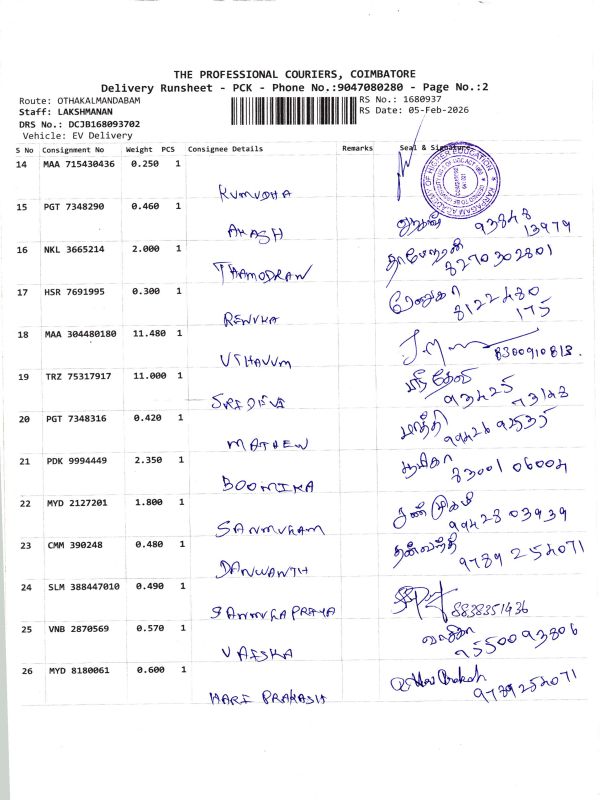 THE PROFESSIONAL COURIERS, COIMBATORE
Delivery Runsheet - PCK - Phone No.:9047080280 - Page No.:2
Route: OTHAKALMANDABAM
RS No.: 1680937
Staff: LAKSHMANAN
RS Date: 05-Feb-2026
DRS No.: DCJB168093702
Vehicle: EV Delivery
S No Consignment No Weight PCS Consignee Details Remarks Seal & Signature
14 MAA 715430436 0.250 1
KUMUDHA
KARPAGAM ACADEMY OF HIGHER EDUCATION
15 PGT 7348290 0.460 1
AKASH
93848
13979
16 NKL 3665214 2.000 1
THAMODRAN
8270302801
17 HSR 7691995 0.300 1
RENUKA
ரேணுகா
8122480
175
18 MAA 304480180 11.480 1
UTHAVUM
8300910813.
19 TRZ 75317917 11.000 1
SRIDEVI
ஸ்ரீதேவி
93425
73148
20 PGT 7348316 0.420 1
MATHEW
9942692535
21 PDK 9994449 2.350 1
BOOMIKA
83001 06004
22 MYD 2127201 1.800 1
SANMUGAM
சண்முகம்
99428 03939
23 CMM 390248 0.480 1
DANWANTH
9789 254071
24 SLM 388447010 0.490 1
SANMUGAPRIYA
8838351436
25 VNB 2870569 0.570 1
VAISKA
9550093806
26 MYD 8180061 0.600 1
HARI PRAKASH
9789254071